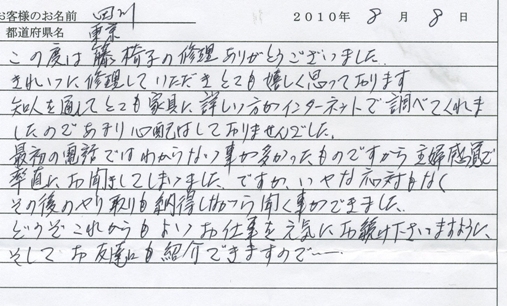 お客様のお名前 四川 2010年 8月 8日
都道府県名 東京
この度は籐椅子の修理ありがとうございました。
きれいに修理していただきとても嬉しく思っております
知人を通してとても家具に詳しい方がインターネットで調べてくれま
したのであまり心配はしておりませんでした。
最初の電話ではわからない事が多かったものですから主婦感覚で
率直にお聞きしてしまいました、ですが、いやな応対もなく
その後のやり取りも納得しながら聞く事ができました。
どうぞこれからもよいお仕事を元気にお続け下さいますように、
そして お友達にも紹介できますので――.